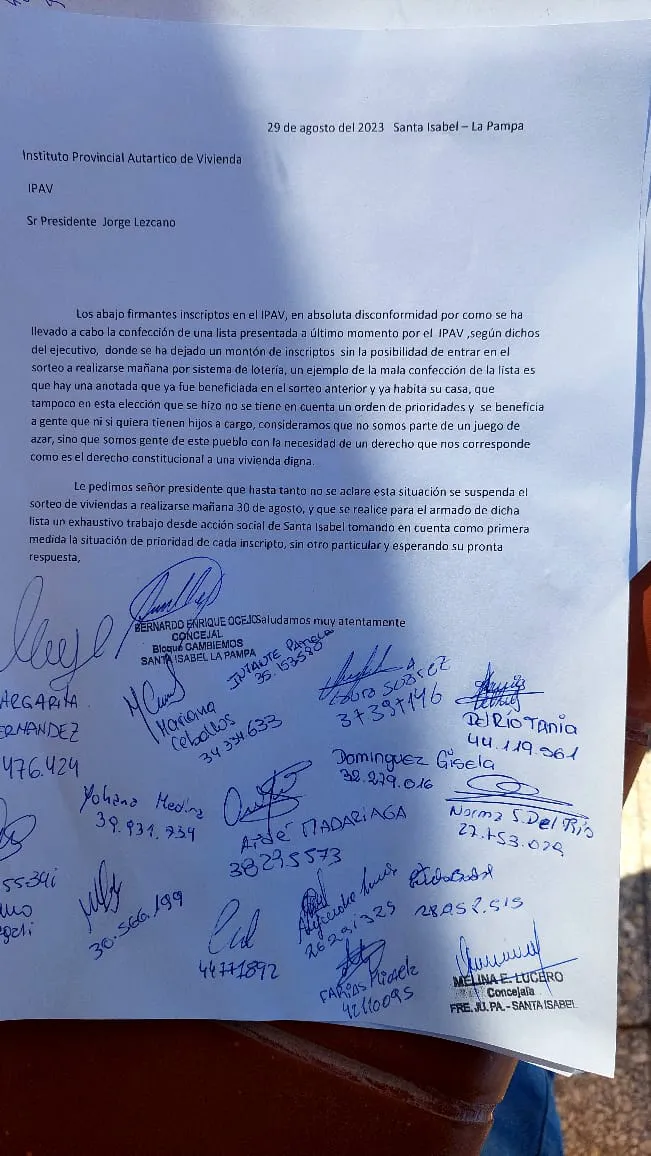 29 de agosto del 2023 Santa Isabel – La Pampa
Instituto Provincial Autartico de Vivienda
IPAV
Sr Presidente Jorge Lezcano
Los abajo firmantes inscriptos en el IPAV, en absoluta disconformidad por como se ha
llevado a cabo la confección de una lista presentada a último momento por el IPAV ,según dichos
del ejecutivo, donde se ha dejado un montón de inscriptos sin la posibilidad de entrar en el
sorteo a realizarse mañana por sistema de lotería, un ejemplo de la mala confección de la lista es
que hay una anotada que ya fue beneficiada en el sorteo anterior y ya habita su casa, que
tampoco en esta elección que se hizo no se tiene en cuenta un orden de prioridades y se beneficia
a gente que ni si quiera tienen hijos a cargo, consideramos que no somos parte de un juego de
azar, sino que somos gente de este pueblo con la necesidad de un derecho que nos corresponde
como es el derecho constitucional a una vivienda digna.
Le pedimos señor presidente que hasta tanto no se aclare esta situación se suspenda el
sorteo de viviendas a realizarse mañana 30 de agosto, y que se realice para el armado de dicha
lista un exhaustivo trabajo desde acción social de Santa Isabel tomando en cuenta como primera
medida la situación de prioridad de cada inscripto, sin otro particular y esperando su pronta
respuesta,
Saludamos muy atentamente
BERNARDO ENRIQUE OCEJO
CONCEJAL
Bloque CAMBIEMOS
SANTA ISABEL LA PAMPA
ARGARITA
ERNANDEZ
476.424
Mariana
Ceballos
34.334.633
37397146
DEl RÍO TANIA
44.119.961
Dominguez Gisela
Yohana Medina
39.931.934
MADARIAGA
38295573
Norma S. Del Río
30.566.199
44771892
26291325
42110095
MELINA E. LUCERO
Concejala
FRE.JU.PA.- SANTA ISABEL